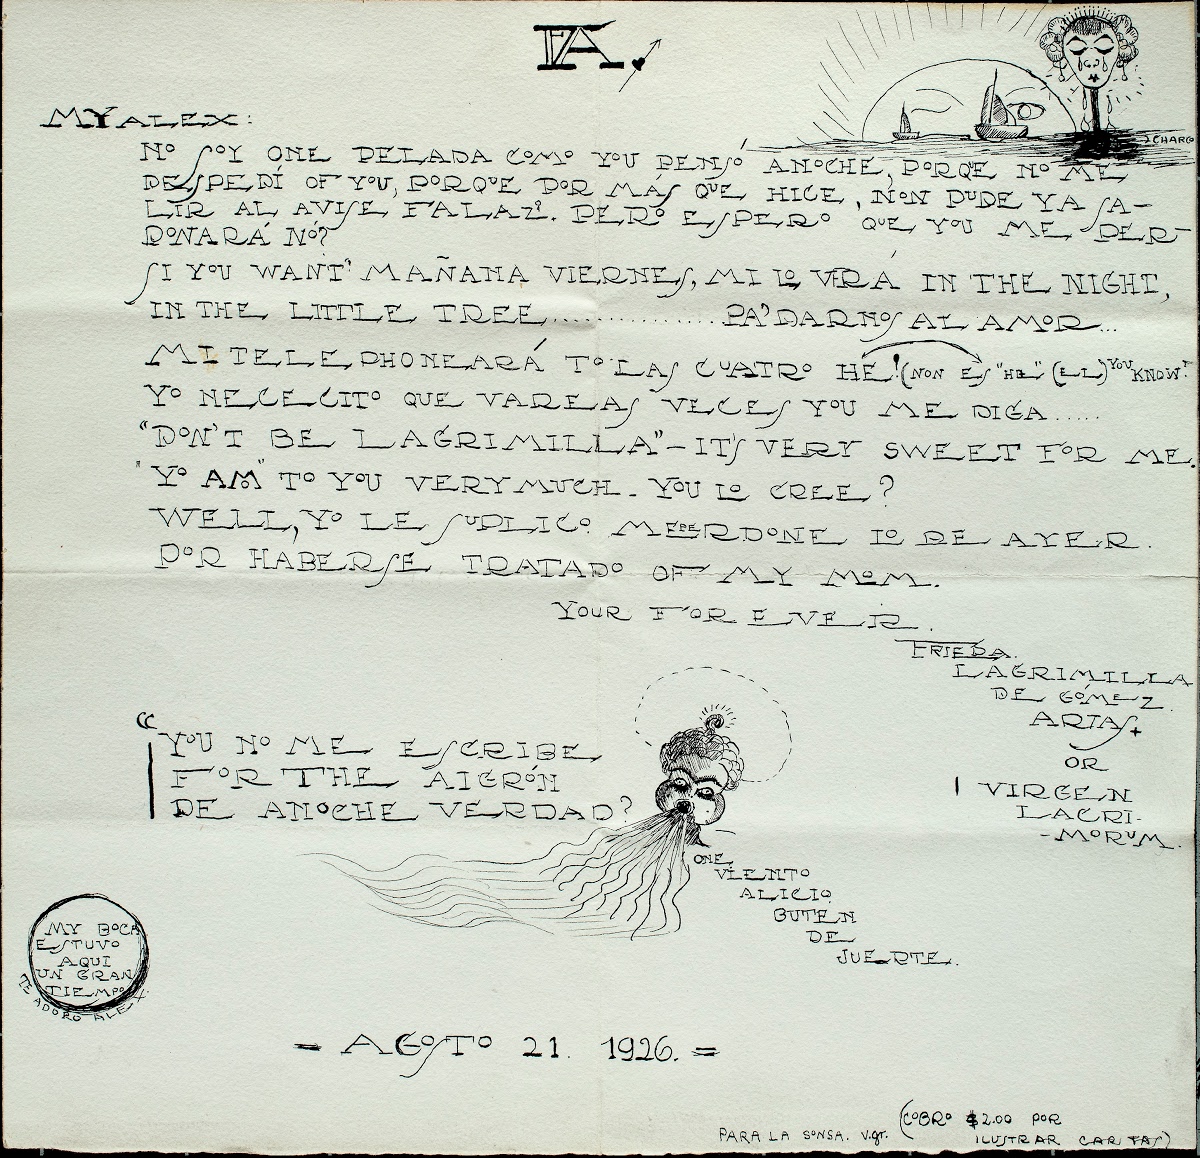 FA.
CHARCO
MY ALEX:
NO SOY ONE PELADA COMO YOU PENSÓ ANOCHE, PORQE NO ME
DESPEDÍ OF YOU, PORQUE POR MÁS QUE HICE, NON PUDE YA SA-
LIR AL AVISE FALAZ?. PERO ESPERO QUE YOU ME PER-
DONARÁ NÓ?
SI YOU WANT' MAÑANA VIERNES, MI LO VIRÁ IN THE NIGHT,
IN THE LITTLE TREE.............. PA' DARNOS AL AMOR...
MI TELEPHONEARÁ TO LAS CUATRO HE! (NON ES "HE" (EL) YOU KNOW?
YO NECECITO QUE VAREAS VECES YOU ME DIGA .....
"DON'T BE LAGRIMILLA" - IT'S VERY SWEET FOR ME.
"YO AM" TO YOU VERY MUCH. YOU LO CREE?
WELL, YO LE SUPLICO ME PERDONE LO DE AYER.
POR HABERSE TRATADO OF MY MOM.
YOUR FOR EVER.
FRIEDA.
LAGRIMILLA
DE GÓMEZ
ARIAS
OR
VIRGEN
LACRI-
-MORUM.
"YOU NO ME ESCRIBE
FOR THE AIGRÓN
DE ANOCHE VERDAD?
ONE
VIENTO
ALICIO
BUTEN
DE
JUERTE.
MY BOCA
ESTUVO
AQUI
UN GRAN
TIEMPO
TE ADORO ALEX.
= AGOSTO 21. 1926. =
(COBRO $2.00 POR
PARA LA SONSA. V.gr. ILUSTRAR CARTAS)